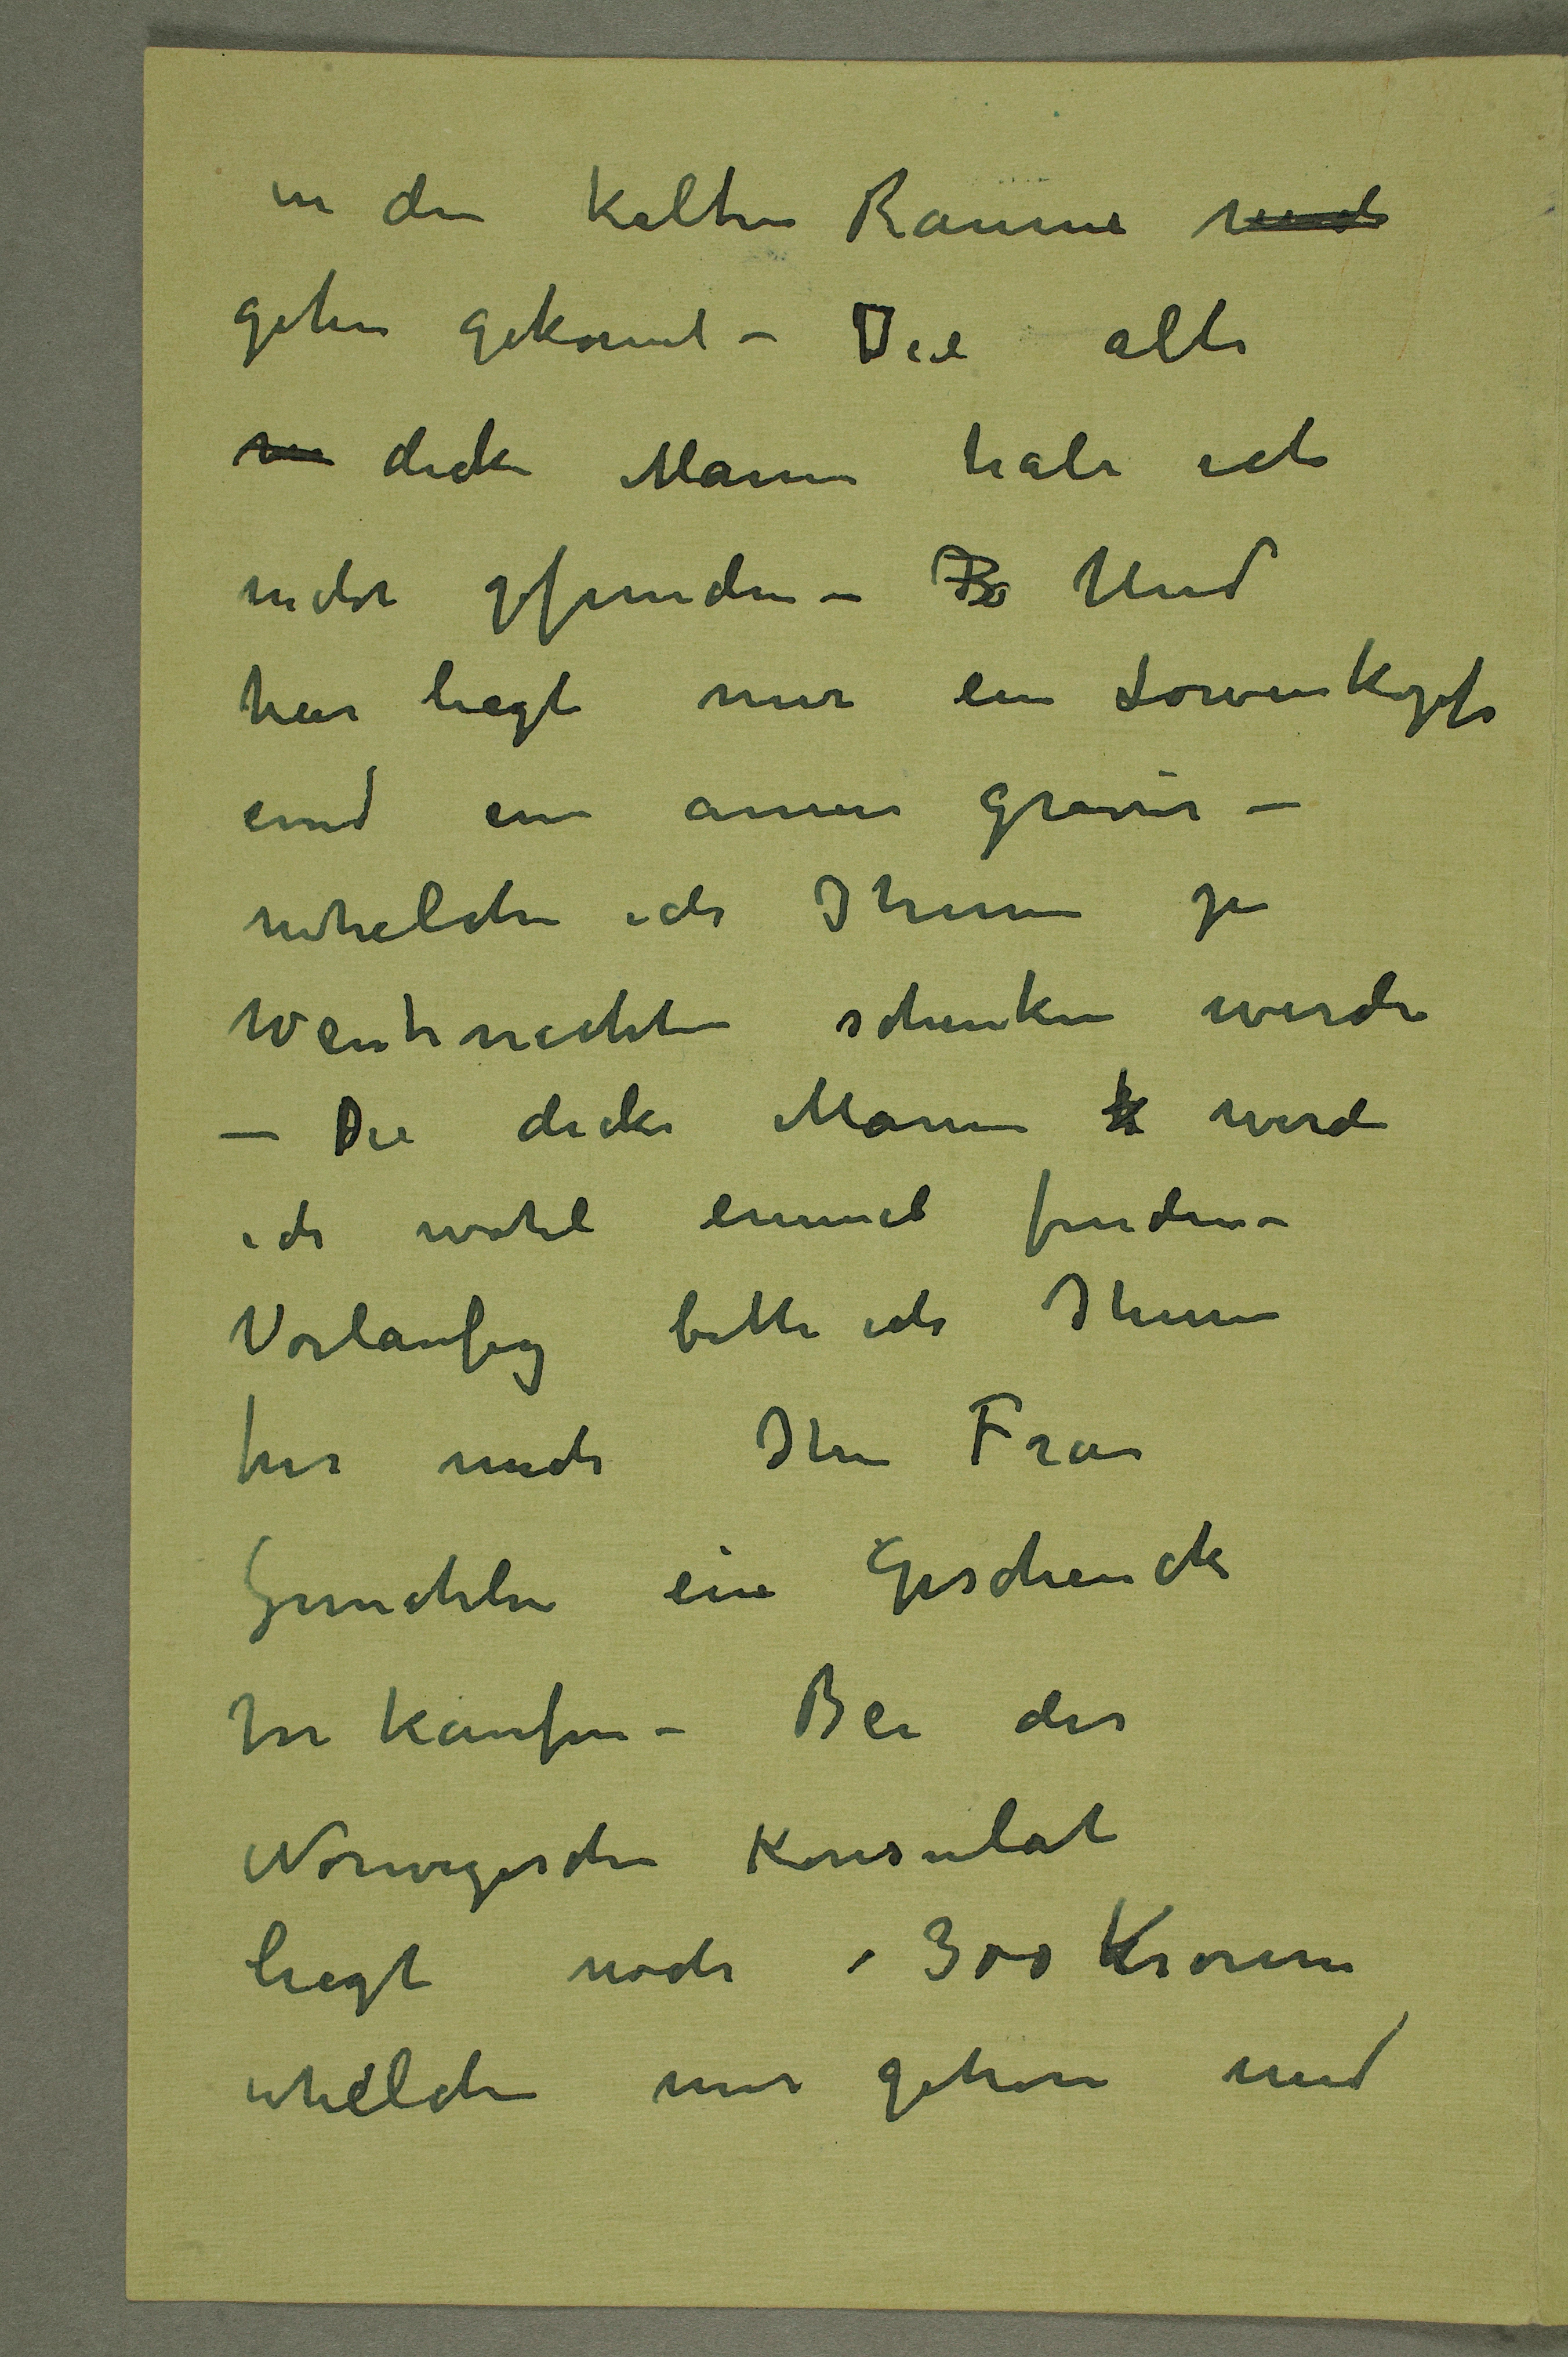 in den kalten Raume nicht
gehen gekonnt – Die alte
dicke Mann habe ich
nicht gefunden – B Und
hier liegt nur ein Löwenkopf
und ein annen gravür –
whelchen ich Ihnen zu
Weihnachten schenken werde
– Die dicke Mann k werde
ich wohl einmal finden –
Vorläufig bitte ich Ihnen
für mich Ihre Frau
Gemahlin ein Geschenck
zu kaufen – Bei der
Norwegischen Konsulat
liegt noch 300 Kronen
whelche mir gehören und